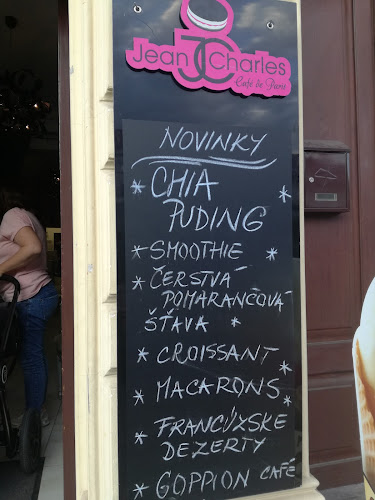 Jean JC Charles
Café de Paris
NOVINKY
* CHIA *
PUDING
* SMOOTHIE *
* ČERSTVÁ
POMARANČOVÁ
ŠŤAVA *
* CROISSANT *
* MACARONS *
* FRANCÚZSKE
DEZERTY *
* GOPPION CAFÉ